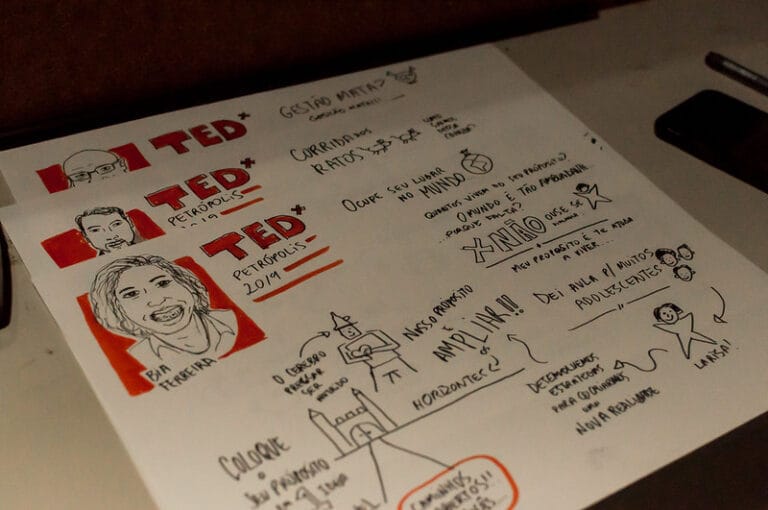 TEDx
GESTÃO MATA?
TEDx
PETRÓPOLIS
CORRIDA DOS
RATOS
TEDx
PETRÓPOLIS
2019
BIA
FERREIRA
OCUPE SEU LUGAR
NO MUNDO
QUANTOS VIVEM DO SEU PROPÓSITO?
O MUNDO É TÃO
NÃO
OUSE SE
MEU PROPÓSITO É TE AJUDA
A VIVER...
DEI AULA P/ MUITOS
ADOLESCENTES
LARISA!
NOSSO PROPÓSITO
É
AMPLIAR!!
HORIZONTES
O CÉREBRO
PRECISAR
SER
DESENVOLVEMOS
ESTRATÉGIAS
PARA COCRIARMOS
UMA
NOVA REALIDADE
COLOQUE
O
SEU PROPÓSITO
CAMINHOS
ABERTOS!!